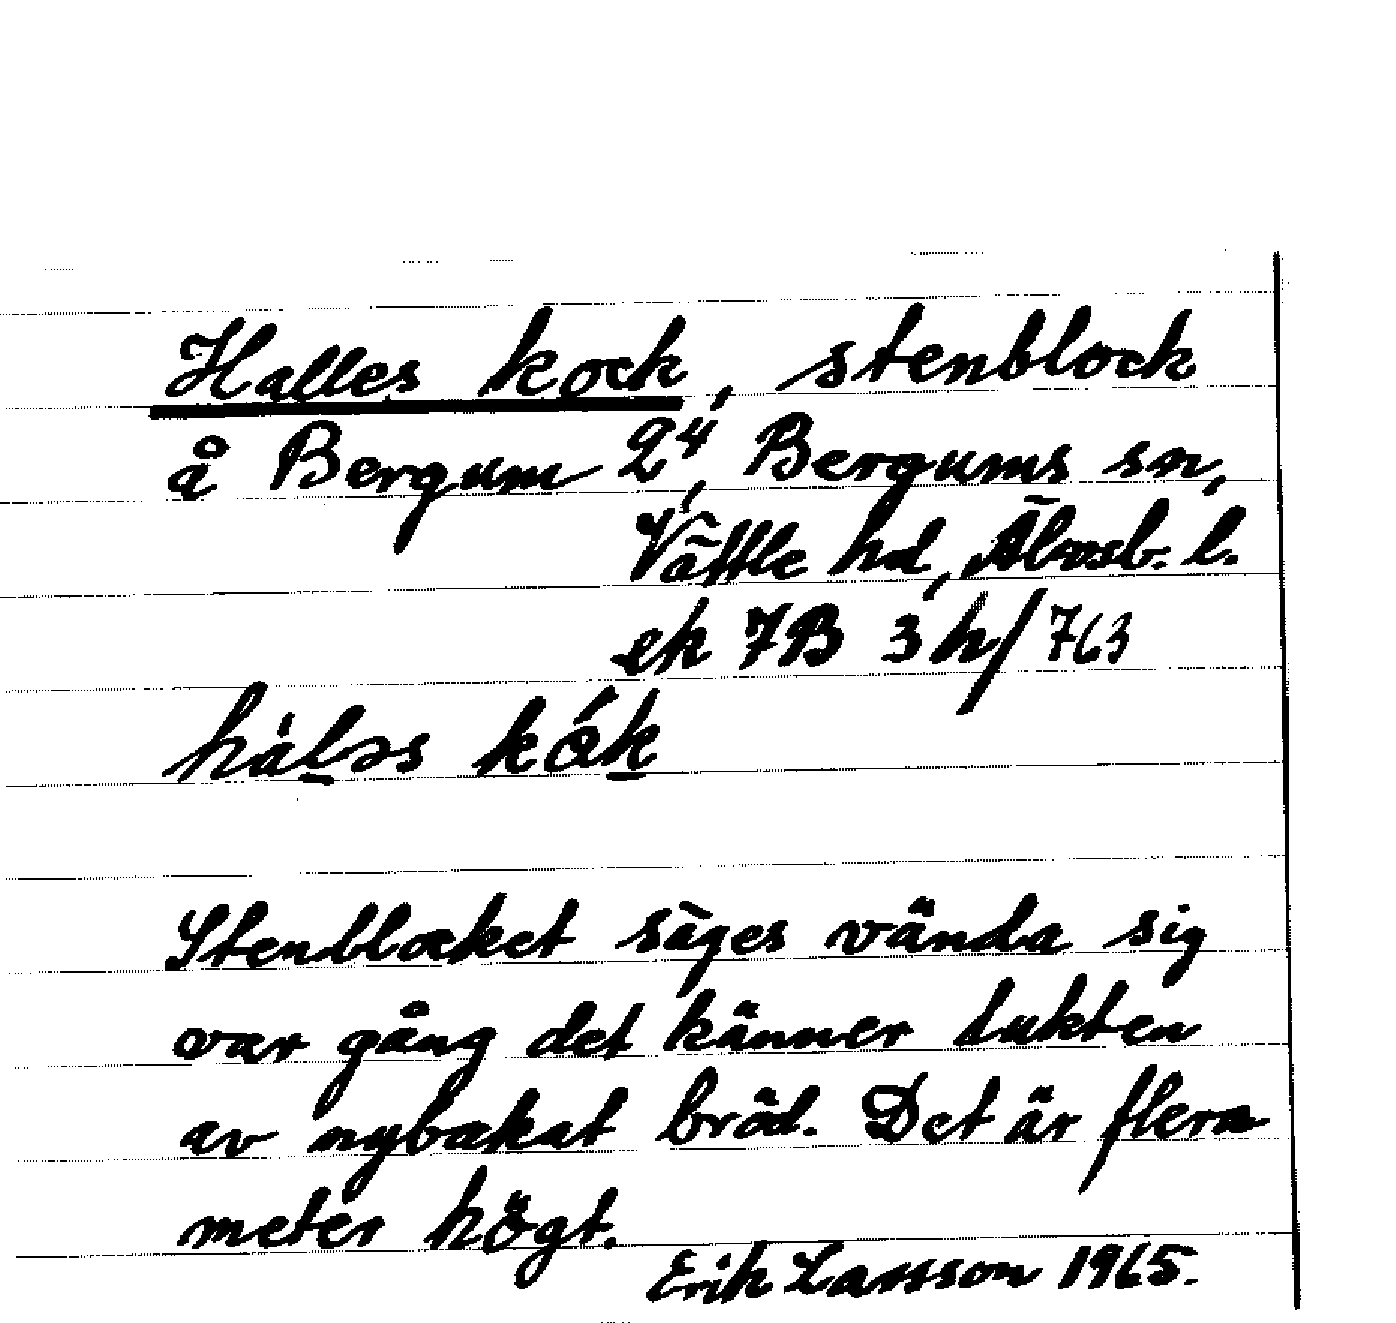 Halles kock, stenblock
å Bergum 2⁴, Bergums sn,
Vättle hd, Älvsb. l.
ek 7B 3h/763
Stenblocket säges vända sig
var gång det känner lukten
av nybakat bröd. Det är flera
meter högt.
Erik Larsson 1965.